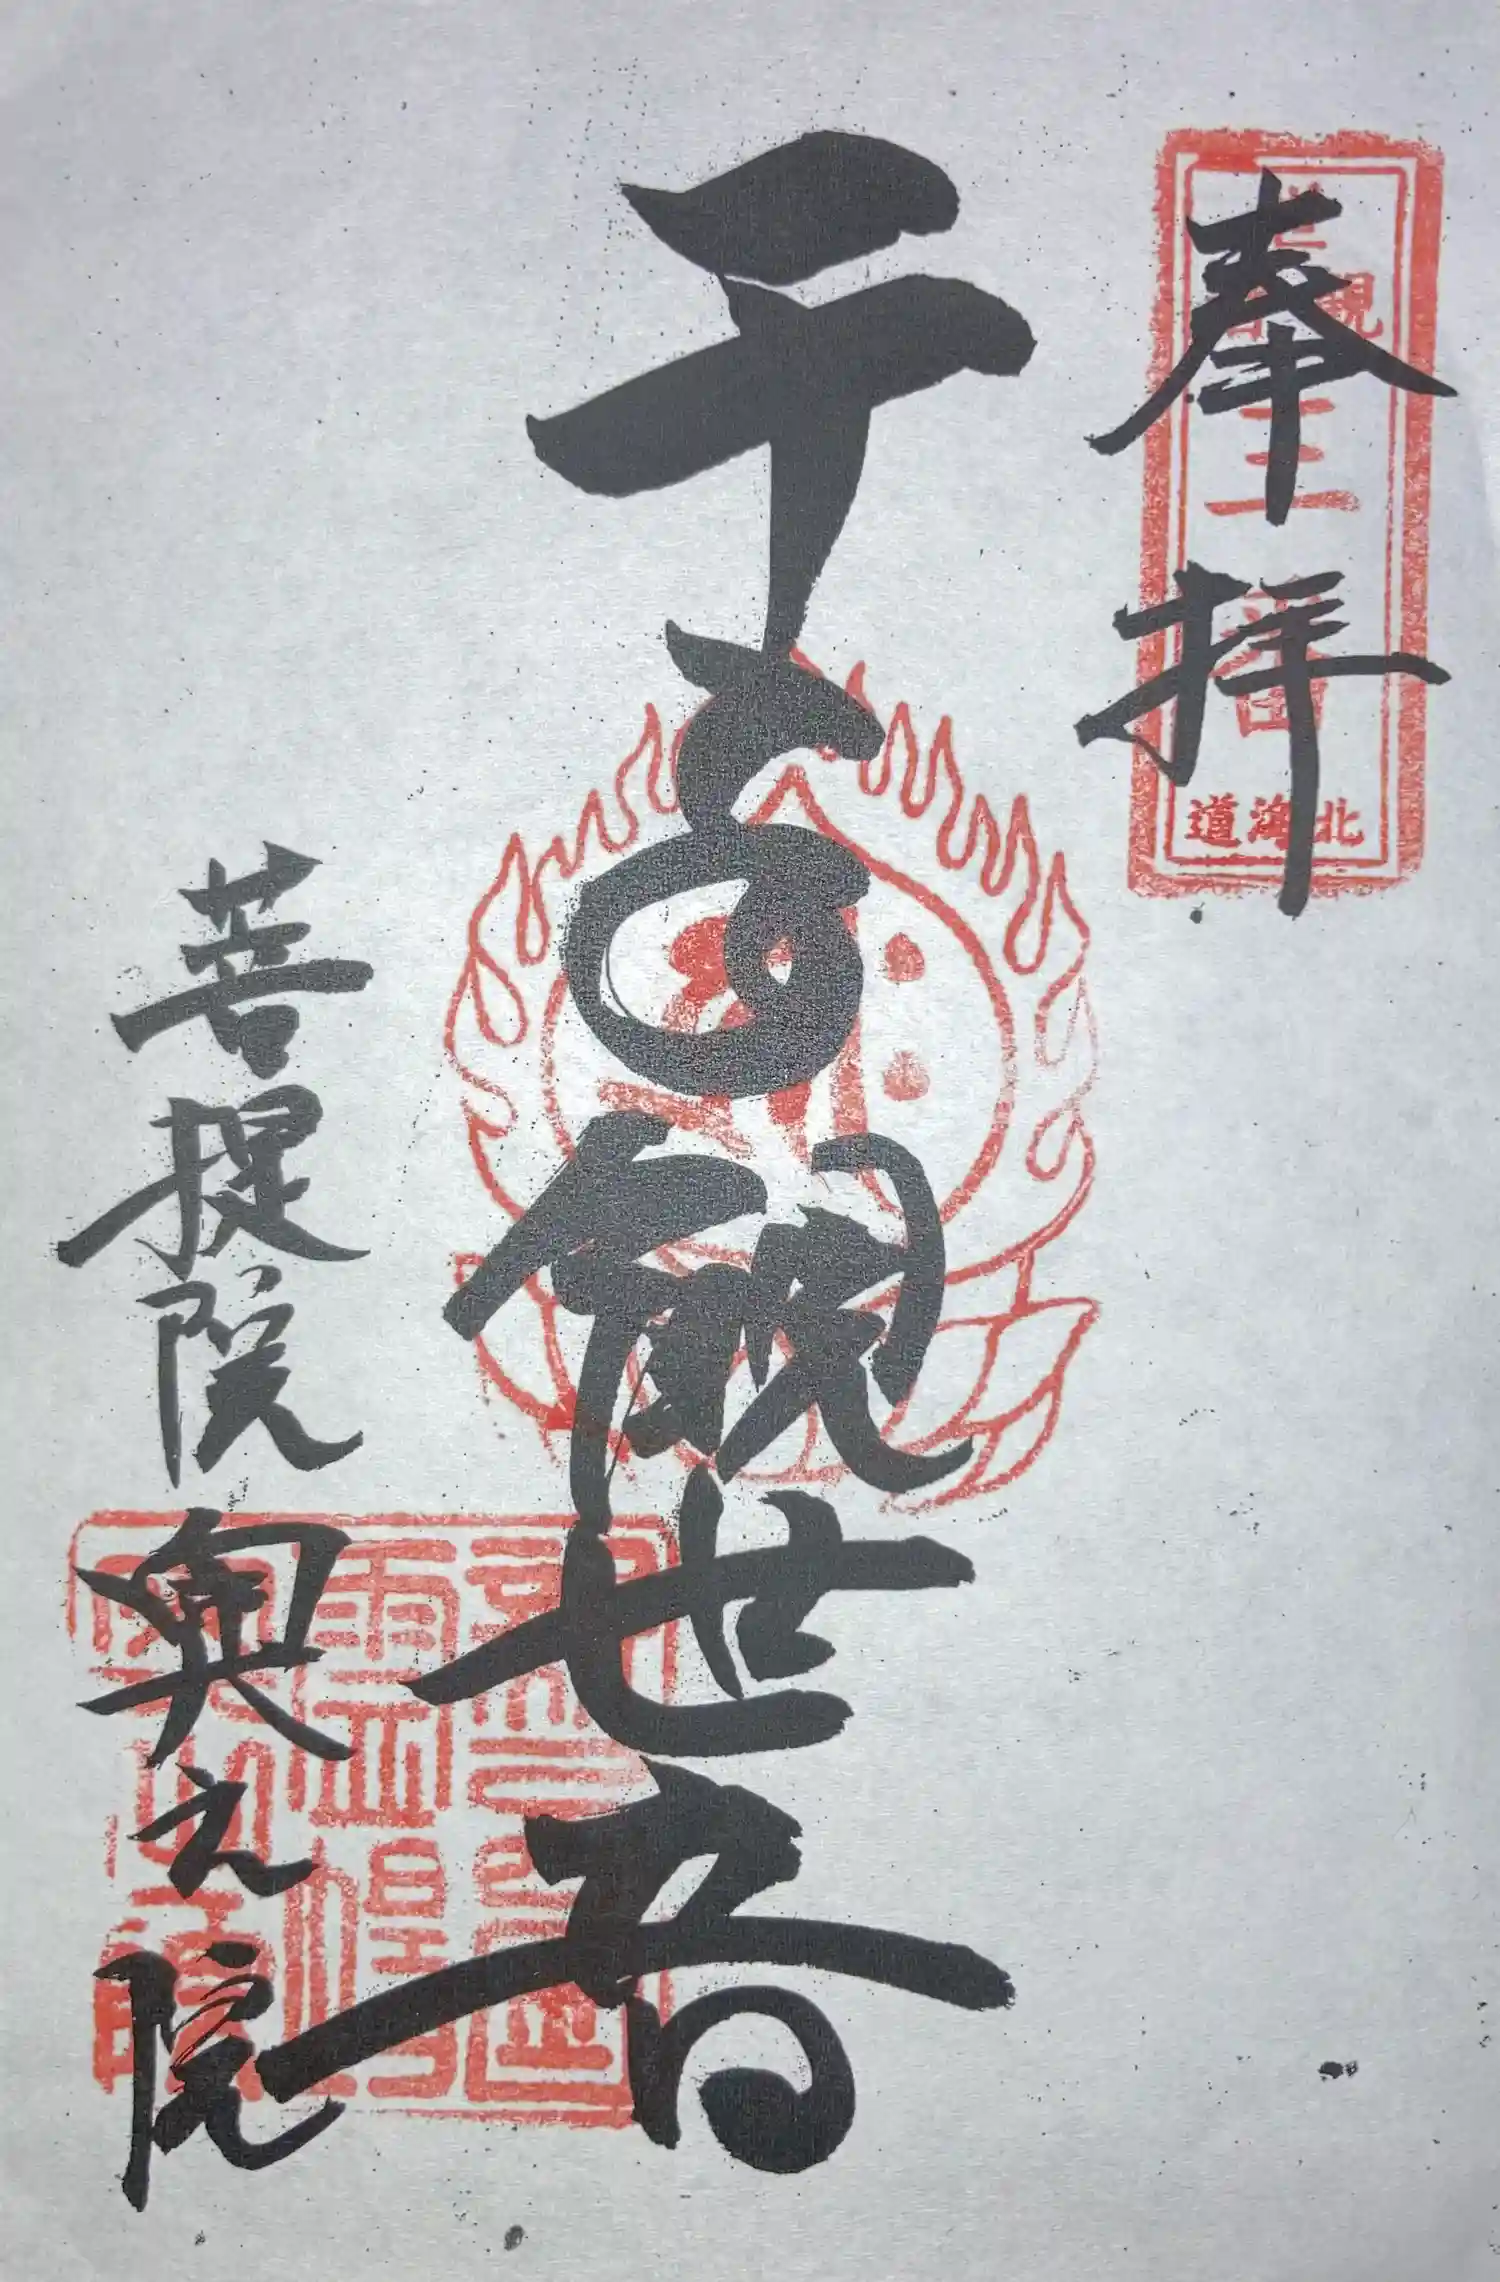 奉拝
千手観世音
菩提院奥之院
三番
北海道